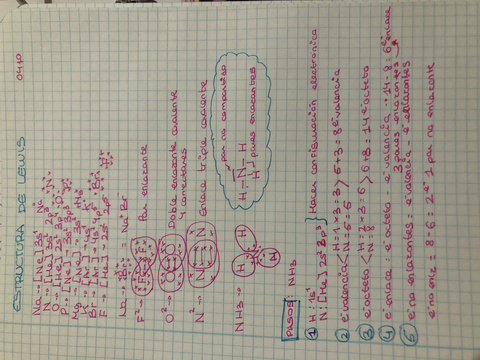 ESTRUCTURA DE LEWIS 04/10
Na → [Ne] 3s¹ Na
N → [He] 2s² 2p³ N
O → [He] 2s² 2p⁴ O
P → [Ne] 3s² 3p³ P
Mg → [Ne] → 3s² Mg
K → [Ar] → 4s¹ K
Br → [Ar] → 4s² 4p⁵ Br
F → [He] 2s² 2p⁵
= Na⁺ Br⁻
F² → F F Par enlazante
O² → O O Doble enlazante covalente
4 conectores
N² → N N Enlace triple covalente
NH3 → H N H H
H-N-H
H
par no compartido
pares enlazantes
PASOS: NH3
① H: 1s¹
N: [He] 2s² 2p³ } Hacer configuración electronica
② e⁻ valencia < H = 1·3 = 3 > 5+3 = 8 e⁻ valencia
N = 5 = 5
③ e⁻ octeto < H = 2·3 = 6 > 6+8 = 14 e⁻ octeto
N = 8
④ e⁻ enlace = e⁻ octeto - e⁻ valencia 14-8 = 6 e⁻ enlace
3 pares enlazantes
⑤ e⁻ no enlazantes = e⁻ valencia - e⁻ enlazantes
e⁻ no enlz = 8-6 = 2 e⁻ 1 par no enlazante